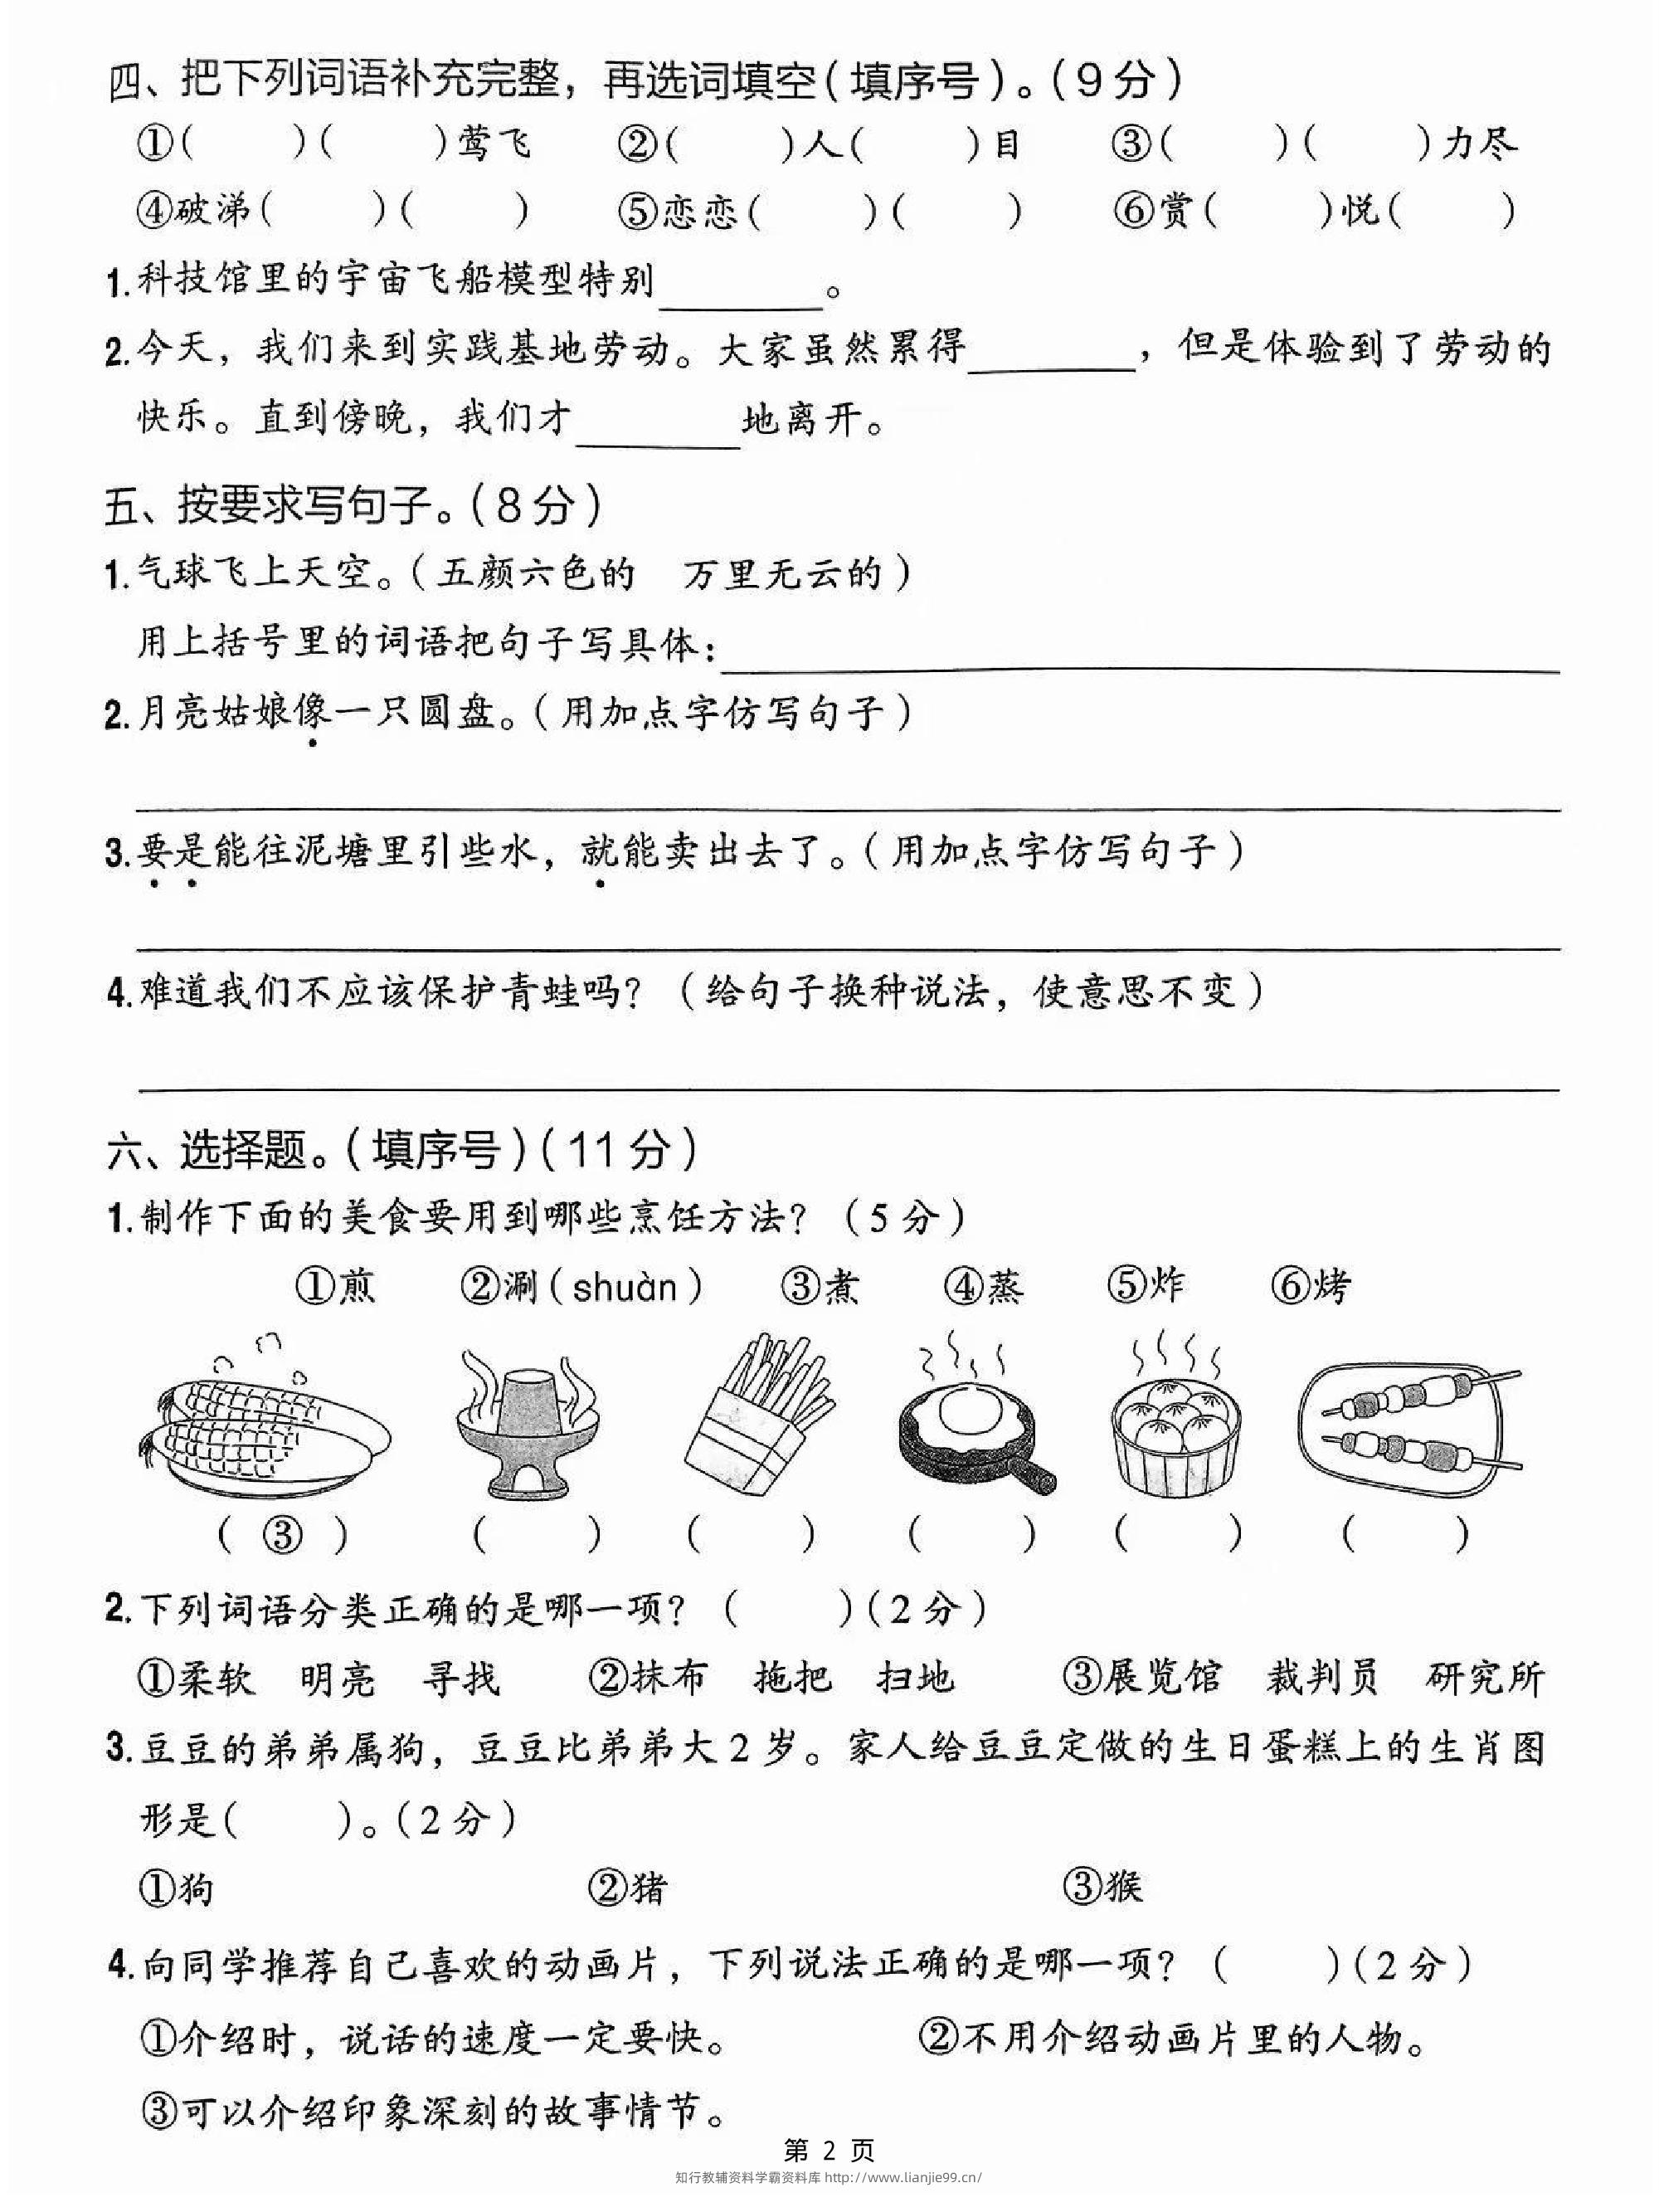 四、把下列词语补充完整，再选词填空(填序号)。(9分)
①(　　)(　　)莺飞　②(　　)人(　　)目　③(　　)(　　)力尽
④破涕(　　)(　　)　⑤恋恋(　　)(　　)　⑥赏(　　)悦(　　)
1.科技馆里的宇宙飞船模型特别________。
2.今天，我们来到实践基地劳动。大家虽然累得________，但是体验到了劳动的
快乐。直到傍晚，我们才________地离开。
五、按要求写句子。(8分)
1.气球飞上天空。(五颜六色的　万里无云的)
用上括号里的词语把句子写具体：________
2.月亮姑娘像一只圆盘。(用加点字仿写句子)
3.要是能往泥塘里引些水，就能卖出去了。(用加点字仿写句子)
4.难道我们不应该保护青蛙吗？(给句子换种说法，使意思不变)
六、选择题。(填序号)(11分)
1.制作下面的美食要用到哪些烹饪方法？(5分)
①煎　②涮(shuàn)　③煮　④蒸　⑤炸　⑥烤
(③)　(　　)　(　　)　(　　)　(　　)　(　　)
2.下列词语分类正确的是哪一项？(　　)(2分)
①柔软　明亮　寻找　②抹布　拖把　扫地　③展览馆　裁判员　研究所
3.豆豆的弟弟属狗，豆豆比弟弟大2岁。家人给豆豆定做的生日蛋糕上的生肖图
形是(　　)。(2分)
①狗　②猪　③猴
4.向同学推荐自己喜欢的动画片，下列说法正确的是哪一项？(　　)(2分)
①介绍时，说话的速度一定要快。　②不用介绍动画片里的人物。
③可以介绍印象深刻的故事情节。
第 2 页
知行教辅资料学霸资料库 http://www.lianjie99.cn/